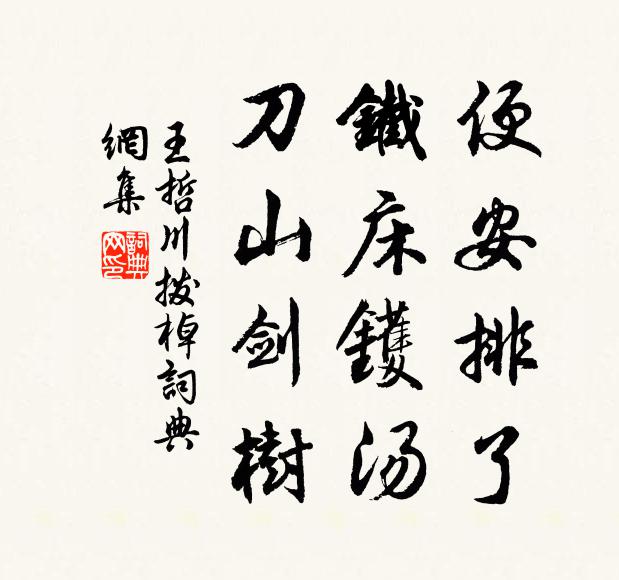 便安排了
鐵床鑊汤
刀山剑樹
王哲川拨棹詞典
網集
詞典
网印